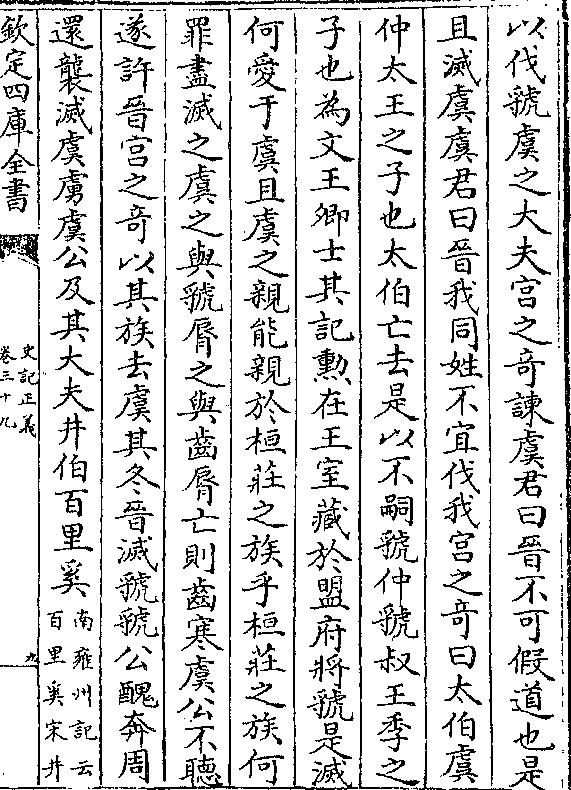 以伐虢虞之大夫宫之竒諫虞君曰晉不可假道也是
且滅虞虞君曰晉我同姓不宜伐我宫之竒曰太伯虞
仲太王之子也太伯亡去是以不嗣虢仲虢叔王季之
子也為文王卿士其記勲在王室藏於盟府將虢是滅
何愛于虞且虞之親能親於桓莊之族乎桓莊之族何
罪盡滅之虞之與虢脣之與齒脣亡則齒寒虞公不聽
遂許晉宫之竒以其族去虞其冬晉滅虢虢公醜奔周
還襲滅虞虜虞公及其大夫井伯百里奚
南雍州記云
百里奚宋井
欽定四庫全書
史記正義
卷三十九
九